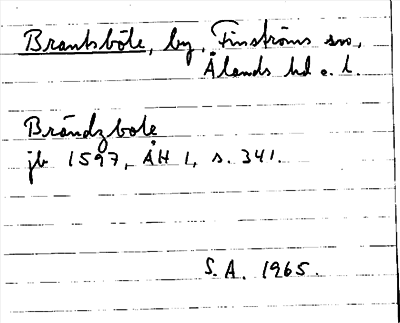 Brantsböle, by, Finströms sn,
Ålands hd o. l.
Brändzbole
jb 1597, ÅH 1, s. 341.
S. A. 1965.